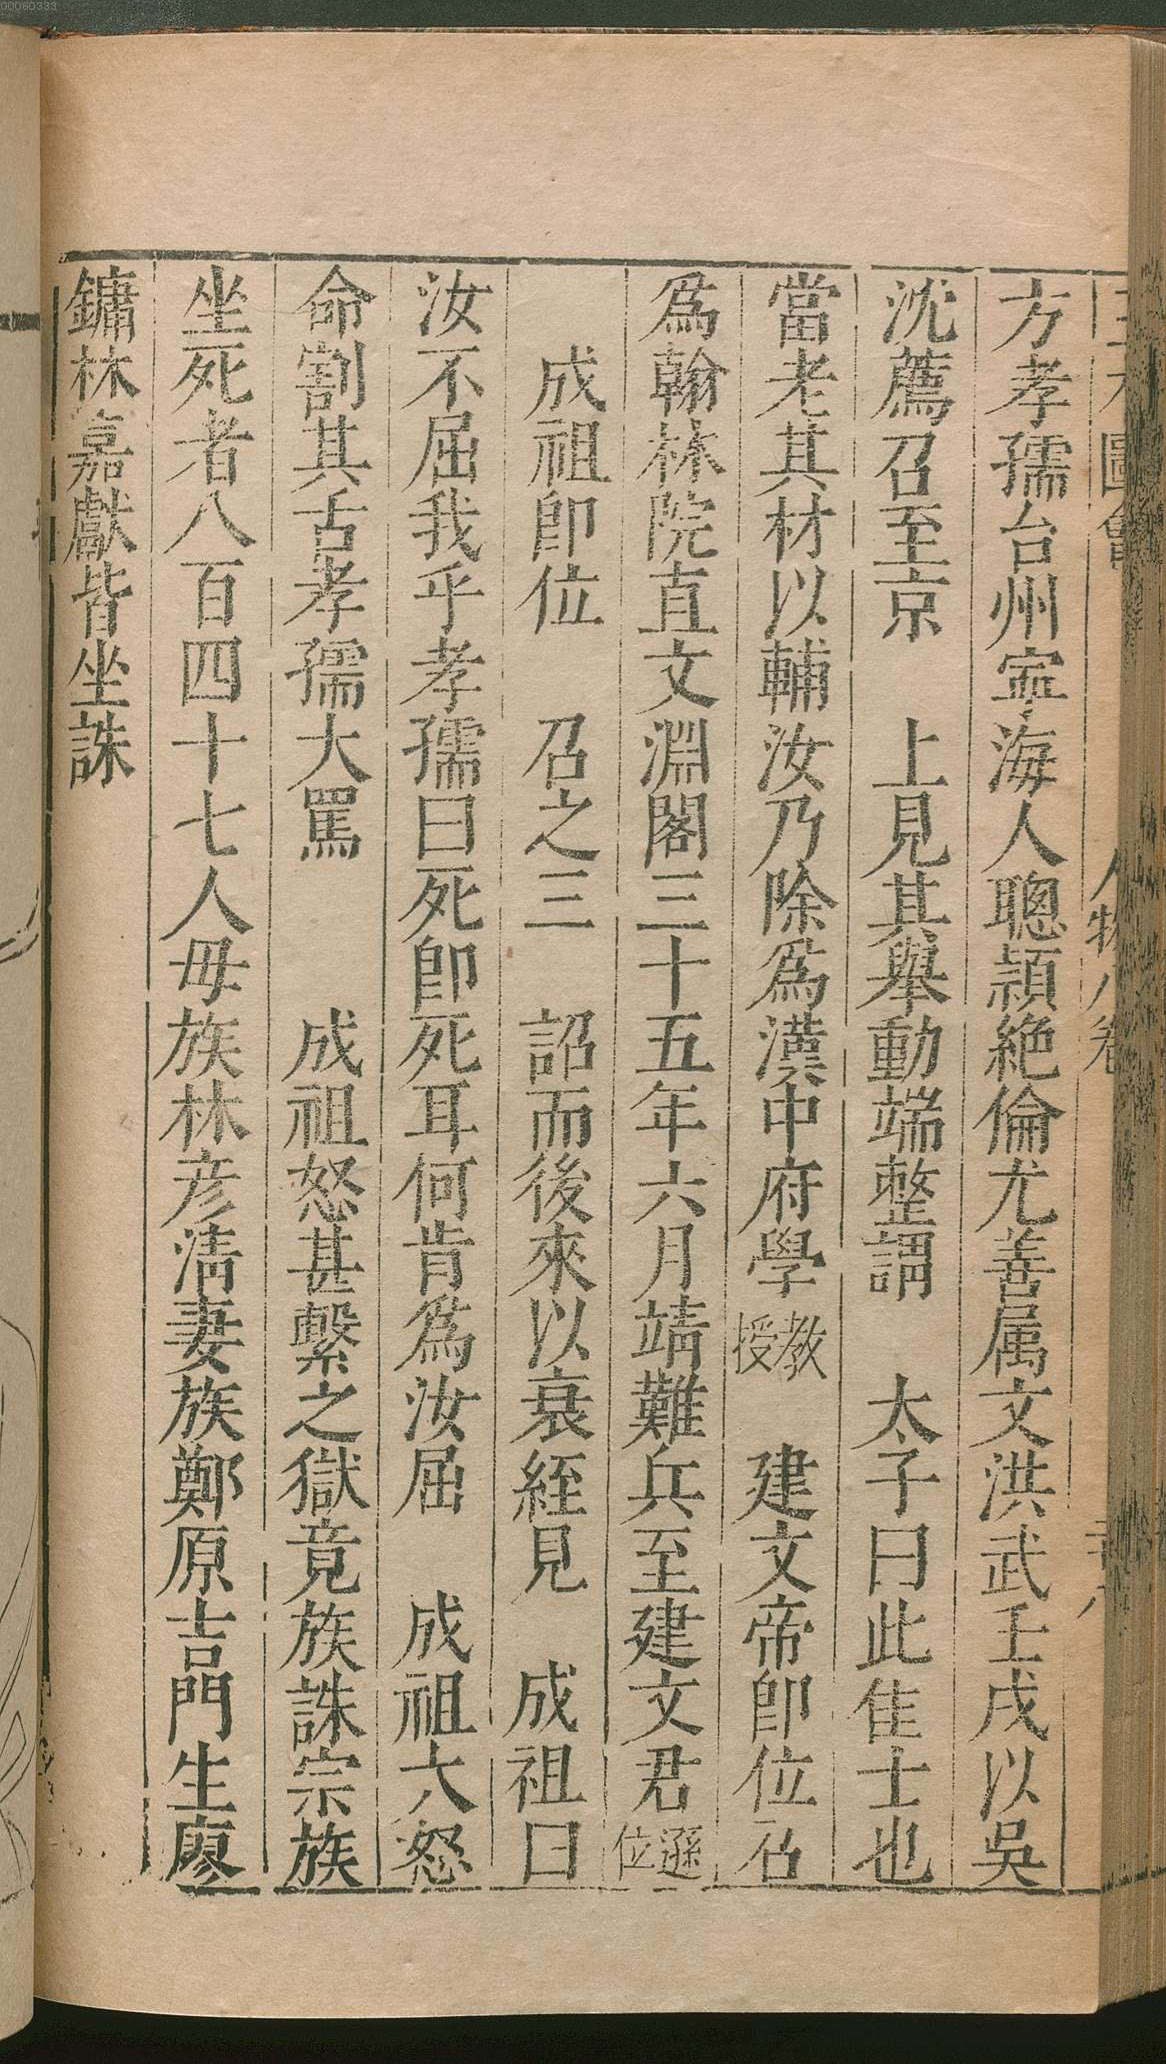 方孝孺台州寧海人聰頴絶倫尤善属文洪武壬戌以吳
沈薦召至京　上見其舉動端整謂　太子曰此佳士也
當老其材以輔汝乃除爲漢中府學教授　建文帝即位召
爲翰林院直文淵閣三十五年六月靖難兵至建文君遜位
成祖即位　召之三　詔而後來以衰絰見　成祖曰
汝不屈我乎孝孺曰死即死耳何肯爲汝屈　成祖大怒
命割其舌孝孺大罵　成祖怒甚繫之獄竟族誅宗族
坐死者八百四十七人毋族林彦清妻族鄭原吉門生廖
鏞林嘉獻皆坐誅
人物八卷
00060333